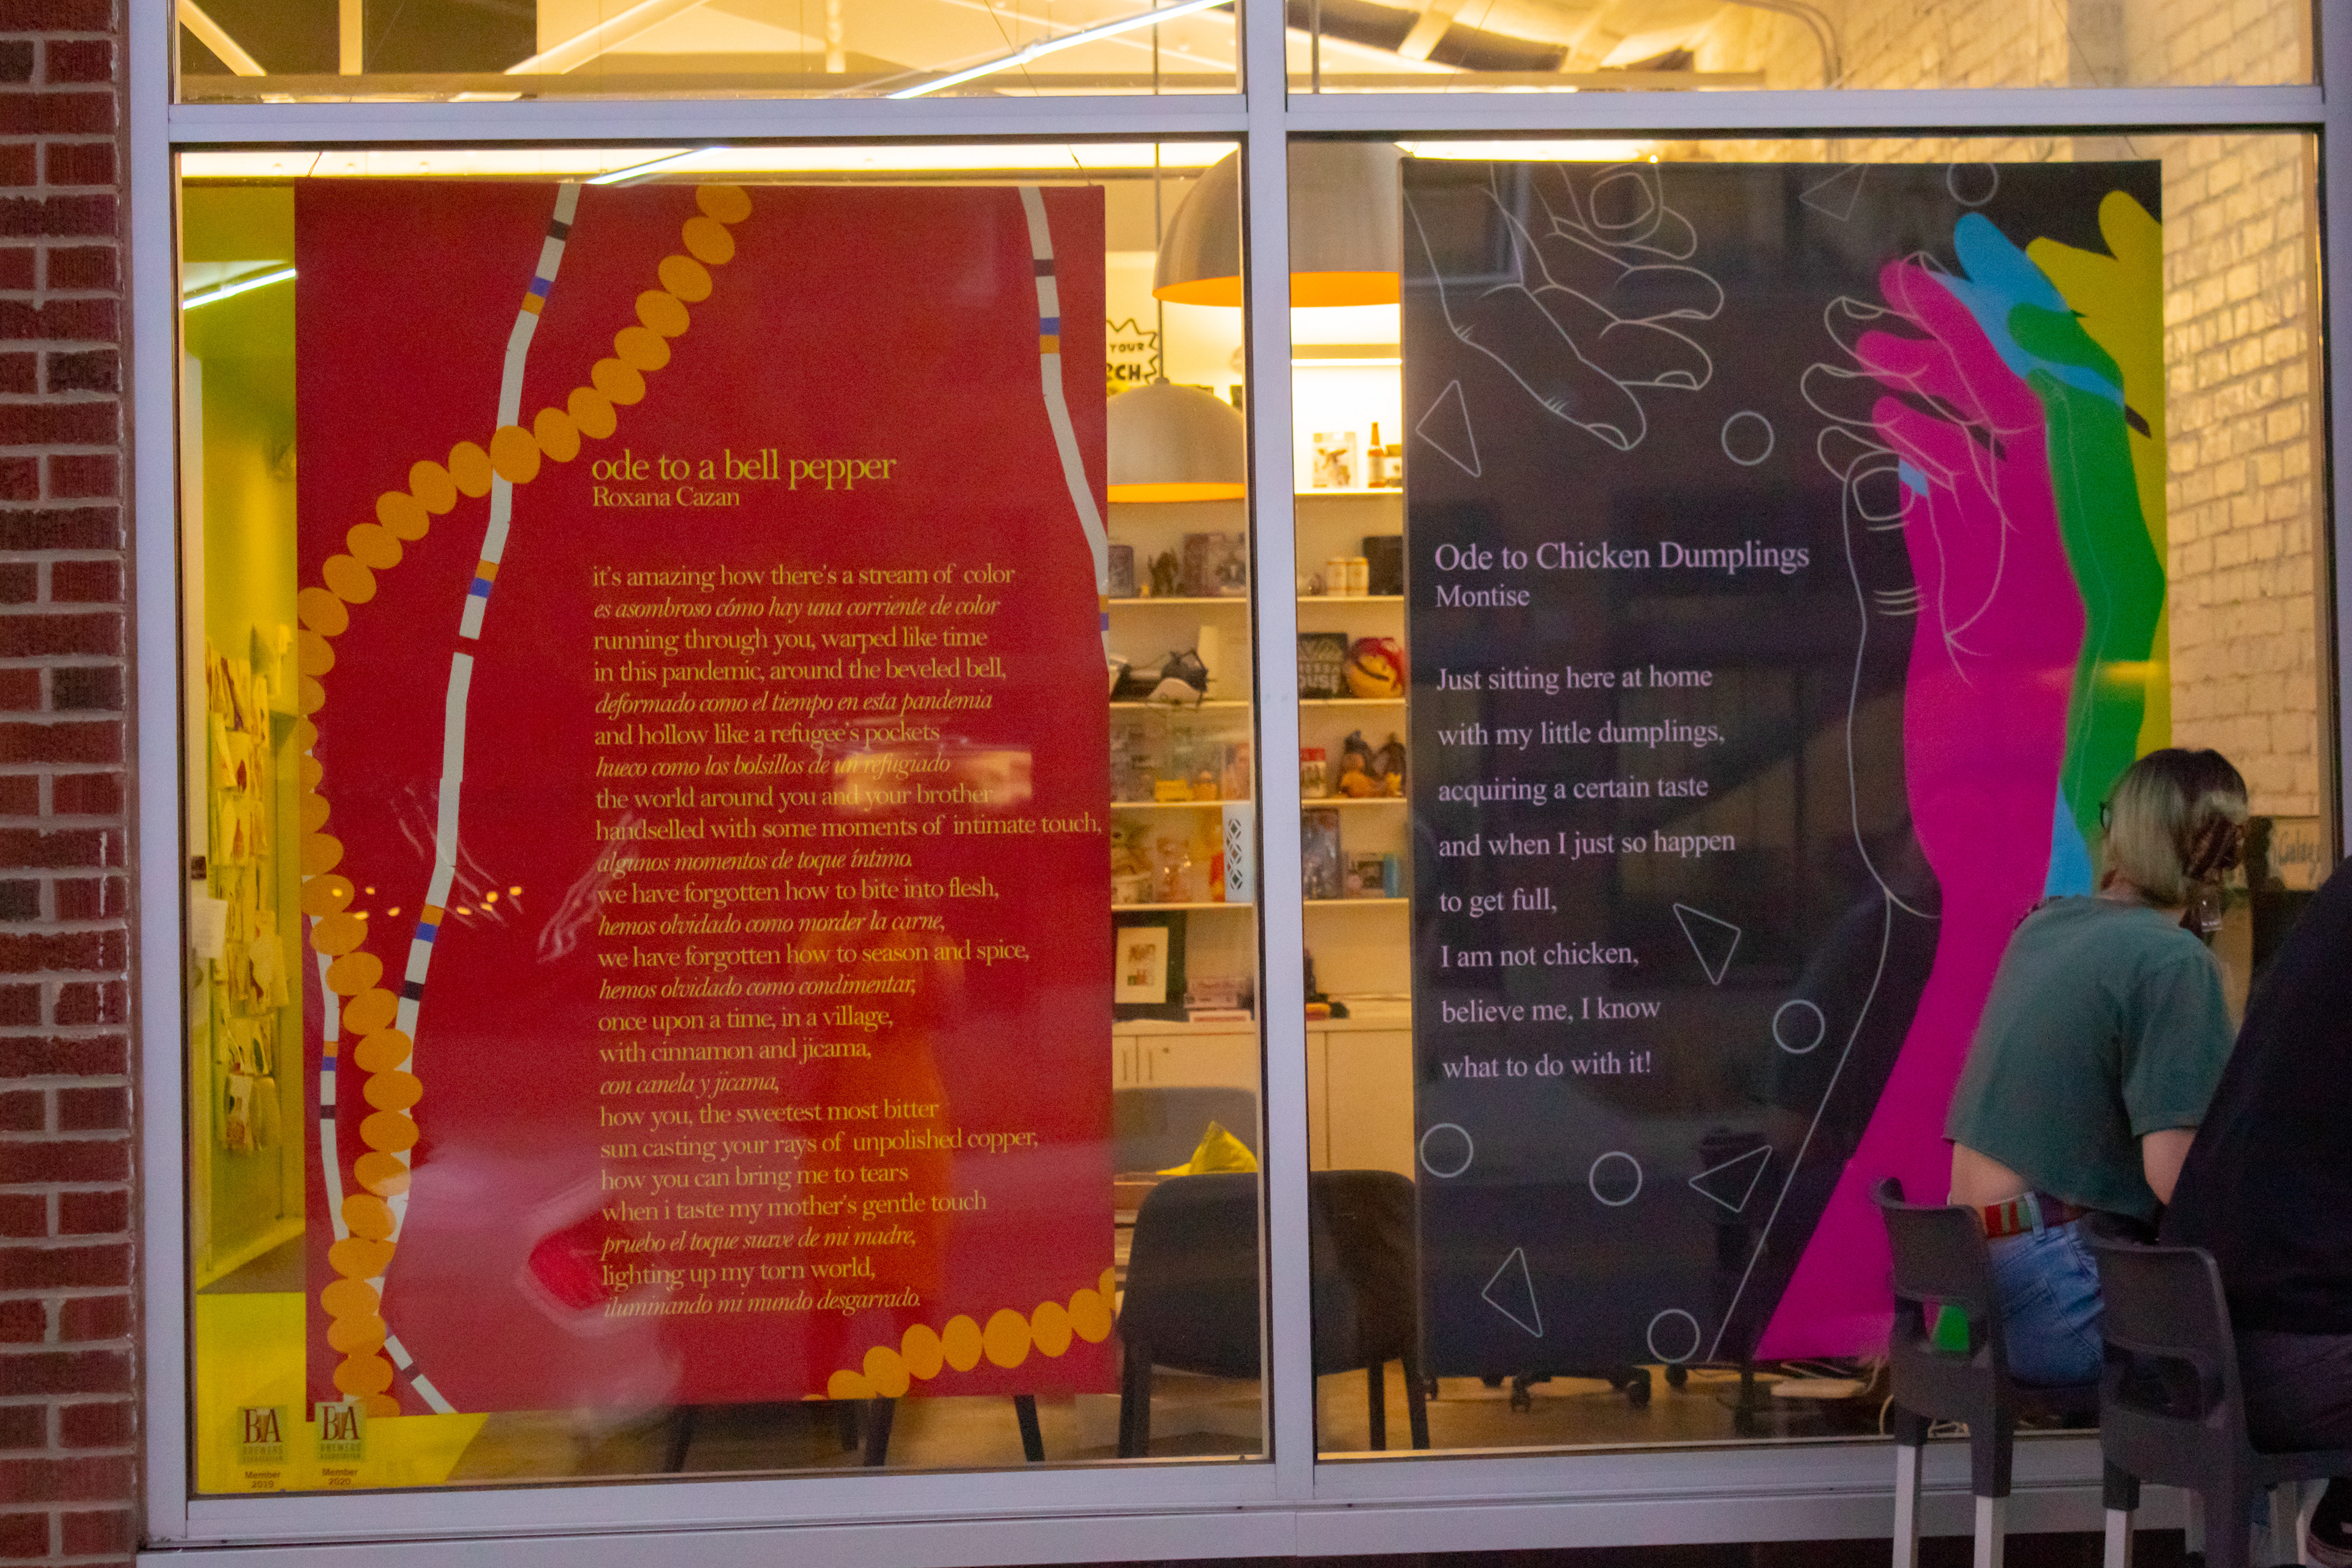 ode to a bell pepper
Roxana Cazan
it's amazing how there's a stream of color
es asombroso cómo hay una corriente de color
running through you, warped like time
in this pandemic, around the beveled bell,
deformado como el tiempo en esta pandemia
and hollow like a refugee's pockets
hueco como los bolsillos de un refugiado
the world around you and your brother
handselled with some moments of intimate touch,
algunos momentos de toque íntimo.
we have forgotten how to bite into flesh,
hemos olvidado como morder la carne,
we have forgotten how to season and spice,
hemos olvidado como condimentar,
once upon a time, in a village,
with cinnamon and jicama,
con canela y jicama,
how you, the sweetest most bitter
sun casting your rays of unpolished copper,
how you can bring me to tears
when i taste my mother's gentle touch
pruebo el toque suave de mi madre,
lighting up my torn world,
iluminando mi mundo desgarrado.
BA
BREWERS
ASSOCIATION
Member
2019
BA
BREWERS
ASSOCIATION
Member
2020
YOUR
Ode to Chicken Dumplings
Montise
Just sitting here at home
with my little dumplings,
acquiring a certain taste
and when I just so happen
to get full,
I am not chicken,
believe me, I know
what to do with it!